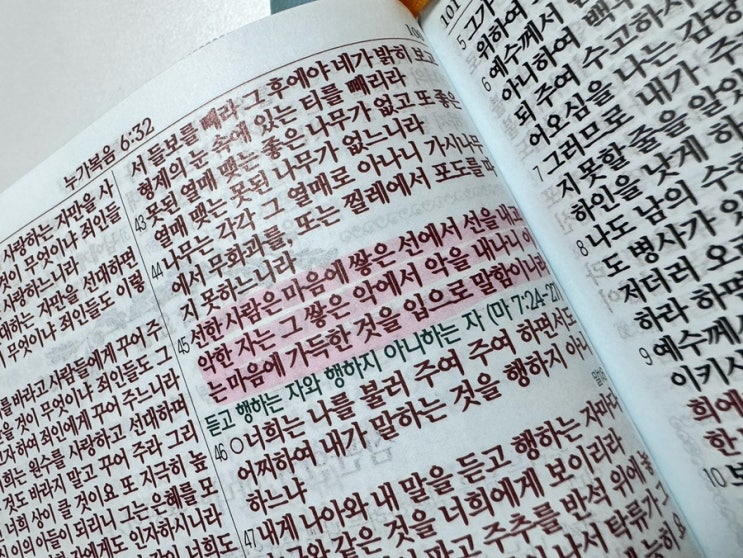 누가복음 6:32
사랑하는 자만을 사
것이 무엇이냐 죄인들
사랑하느니라
대하는 자만을 선대하면
무엇이냐 죄인들도 이렇
를 바라고 사람들에게 꾸어 주
것이 무엇이냐 죄인들도 그
죄인에게 꾸어 주느니라
희는 원수를 사랑하고 선대하며
것도 바라지 말고 꾸어 주라 그리
너희 상이 클 것이요 또 지극히 높
이의 아들이 되리니 그는 은혜를 모
자에게도 인자하시니라
너희도
서 들보를 빼라 그 후에야 네가 밝히 보고
형제의 눈 속에 있는 티를 빼리라
43 못된 열매 맺는 좋은 나무가 없고 또 좋은
열매 맺는 못된 나무가 없느니라
44 나무는 각각 그 열매로 아나니 가시나무
에서 무화과를, 또는 찔레에서 포도를 따
지 못하느니라
45 선한 사람은 마음에 쌓은 선에서 선을 내고
악한 자는 그 쌓은 악에서 악을 내나니 이
는 마음에 가득한 것을 입으로 말함이니라
듣고 행하는 자와 행하지 아니하는 자 (마 7:24-27)
46 ○너희는 나를 불러 주여 주여 하면서도
어찌하여 내가 말하는 것을 행하지 아니
하느냐
47 내게 나아와 내 말을 듣고 행하는 자마다
누구와 같은 것을 너희에게 보이리라
파고 주추를 반석 위에 놓
나서 탁류가 그
101
5 그가
위하여
6 예수께서
아니하여 백부
되 주여 수고하시
어오심을 나는 감당
7 그러므로 내가 주
지 못할 줄을 알았
하인을 낫게 하
8 나도 남의 수하
도 병사가 있
저더러 오라
하라 하면
9 예수께서
이키시
희에
한
10 보